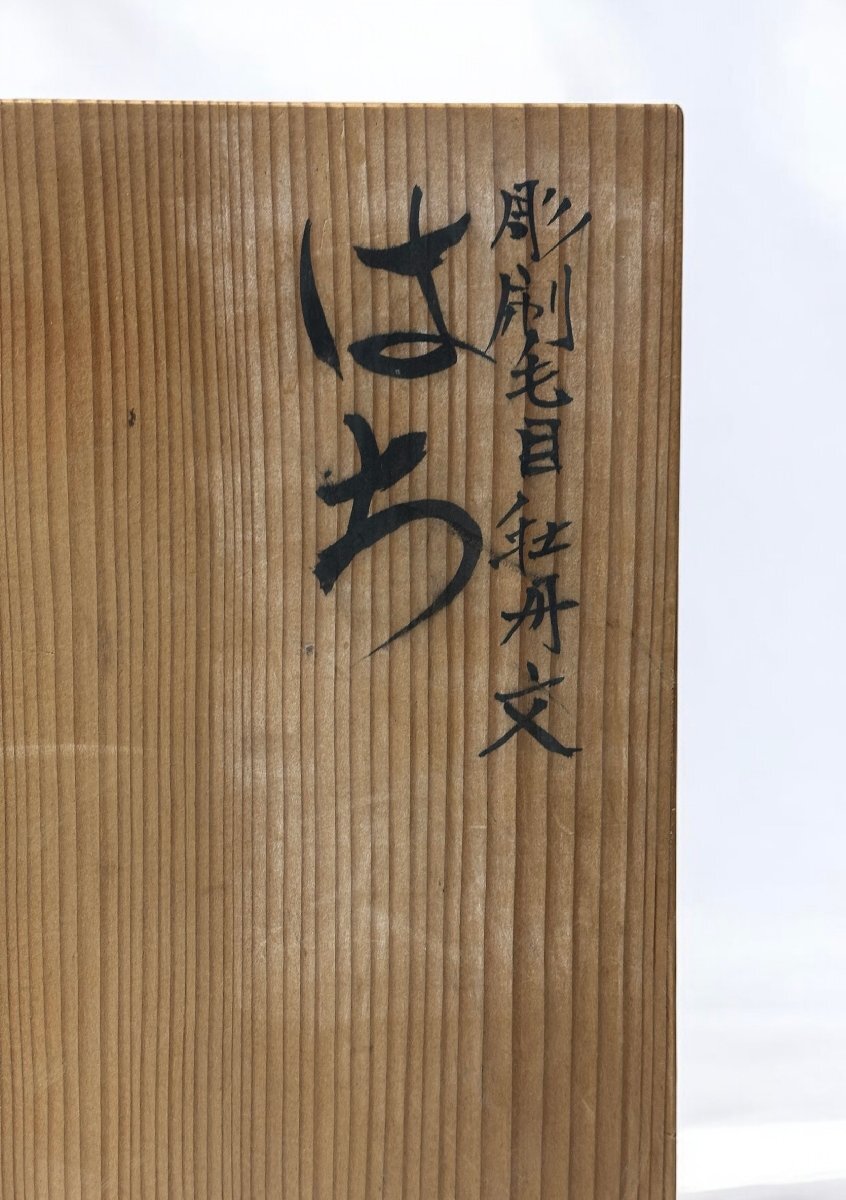 彫刷毛目牡丹文
はち